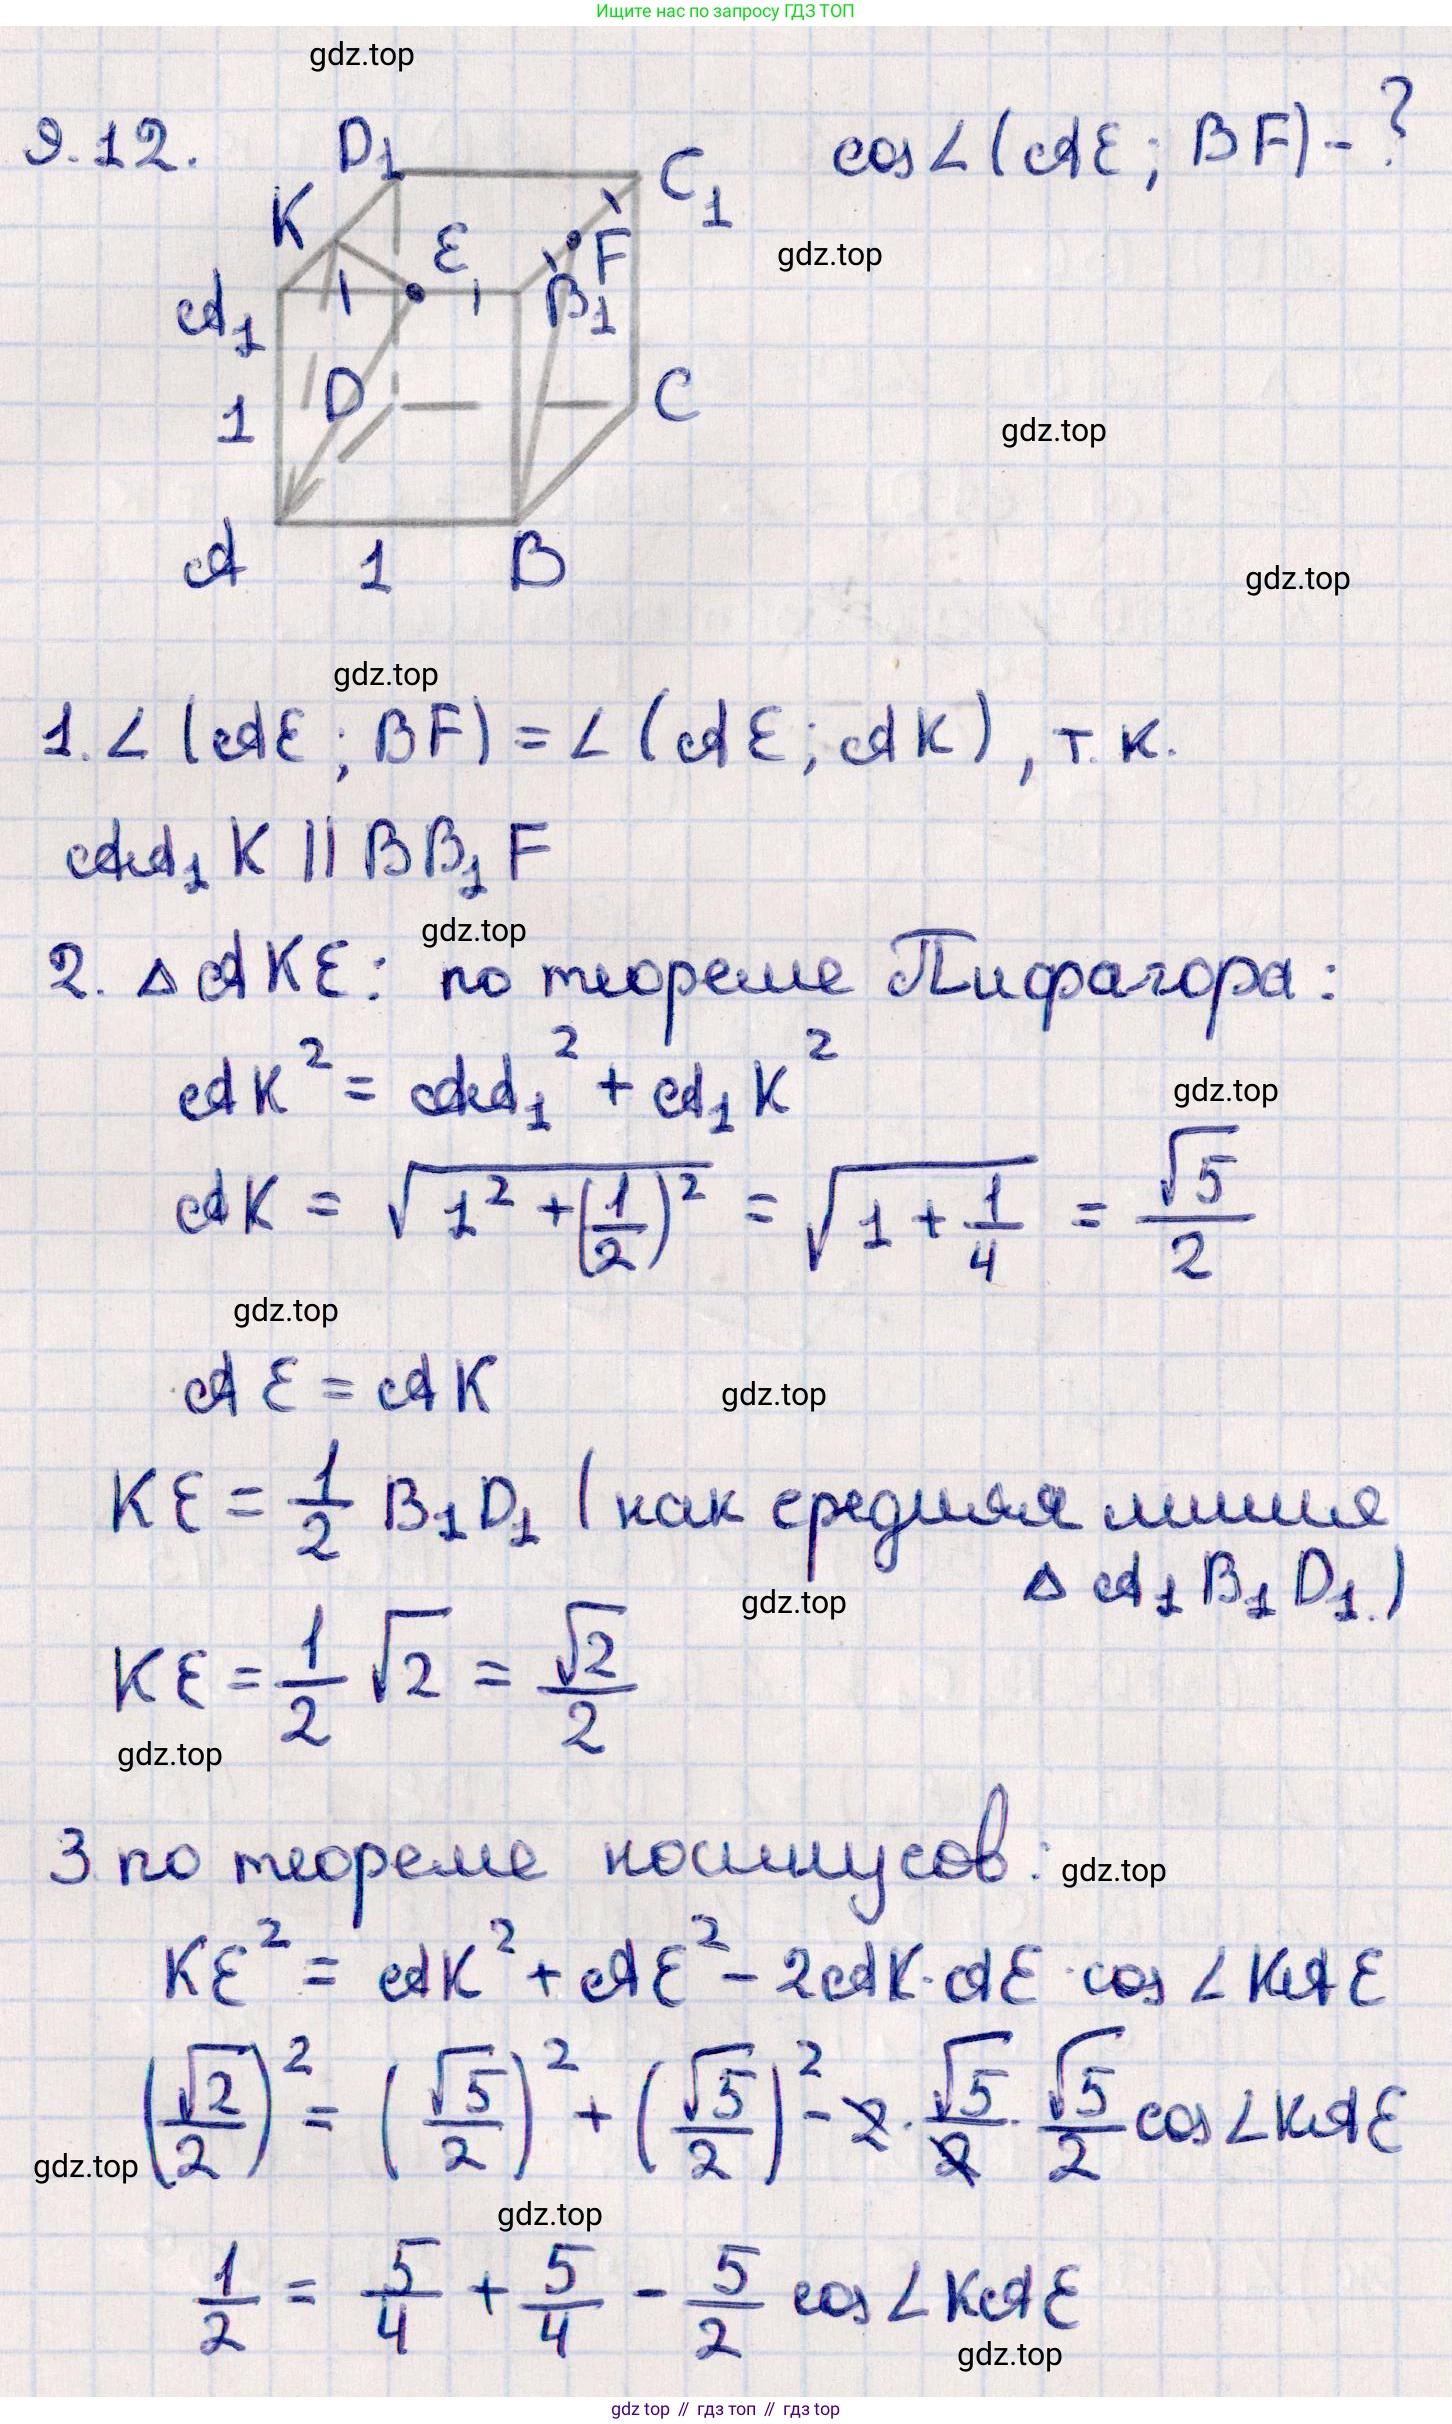 Ищите нас по запросу ГДЗ ТОП
gdz.top
9.12.
cos∠(AE; BF) - ?
D₁
C₁
K
E
F
gdz.top
A₁
B₁
D
C
1
gdz.top
A
1
B
gdz.top
gdz.top
1. ∠(AE; BF) = ∠(AE; AK), т.к.
AA₁K || BB₁F
gdz.top
2. △AKE: по теореме Пифагора:
AK² = AA₁² + A₁K²
gdz.top
AK = √(1² + (1/2)²) = √(1 + 1/4) = √5/2
gdz.top
AE = AK
gdz.top
KE = 1/2 B₁D₁ (как средняя линия
△A₁B₁D₁.)
gdz.top
KE = 1/2 √2 = √2/2
gdz.top
3 по теореме косинусов:
gdz.top
KE² = AK² + AE² - 2AK·AE·cos∠KAE
(√2/2)² = (√5/2)² + (√5/2)² - 2·√5/2·√5/2 cos∠KAE
gdz.top
gdz.top
1/2 = 5/4 + 5/4 - 5/2 cos∠KAE
gdz.top
gdz top // гдз топ // gdz.top